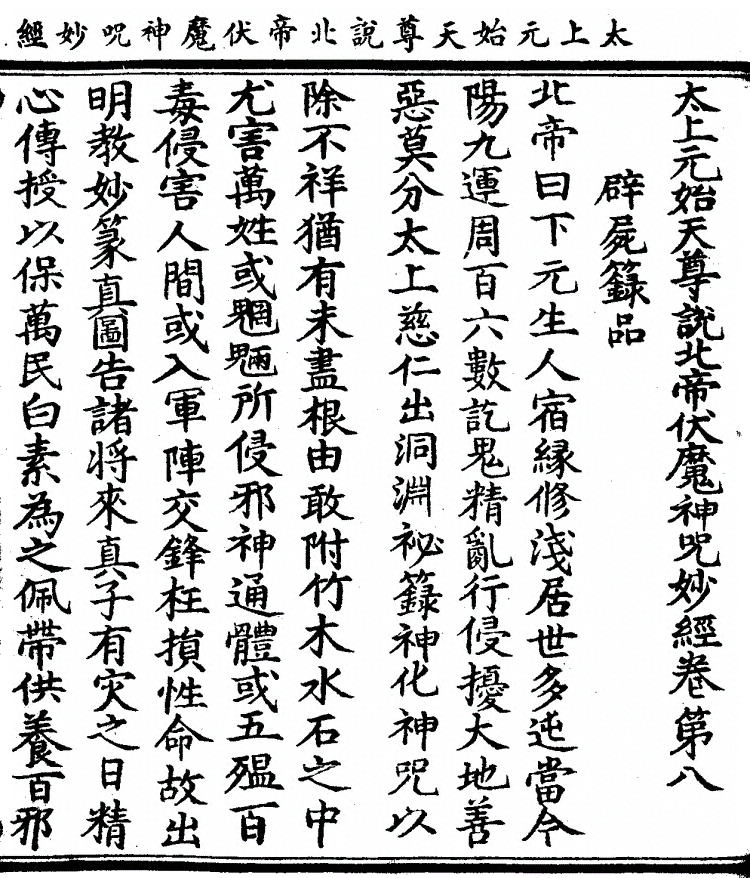 太上元始天尊說北帝伏魔神呪妙經
太上元始天尊說北帝伏魔神呪妙經卷第八
辟屍籙品
北帝曰下元生人宿緣修淺居世多迍當今
陽九運周百六數訖鬼精亂行侵擾大地善
惡莫分太上慈仁出洞淵祕籙神化神呪以
除不祥猶有未盡根由敢附竹木水石之中
尤害萬姓或魍魎所侵邪神通體或五殟百
毒侵害人間或入軍陣交鋒枉損性命故出
明教妙篆真圖告諸將來真子有灾之日精
心傳授以保萬民白素為之佩帶供養百邪